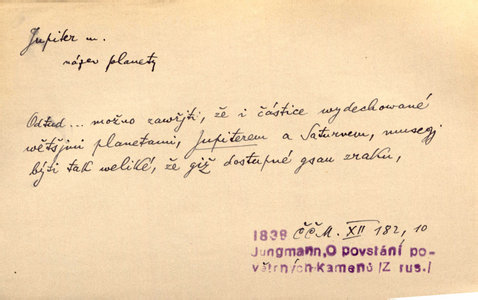 Jupiter m.
název planety
Odtud... možno zawřjti, že i částice wydechowané
wětšjmi planetami, Jupiterem a Saturnem, musegj
býti tak weliké, že giž dostupné gsau zraku,
1838 ČČM. XII 182, 10
Jungmann,O povstání po-
větrních kamenů /Z rus./